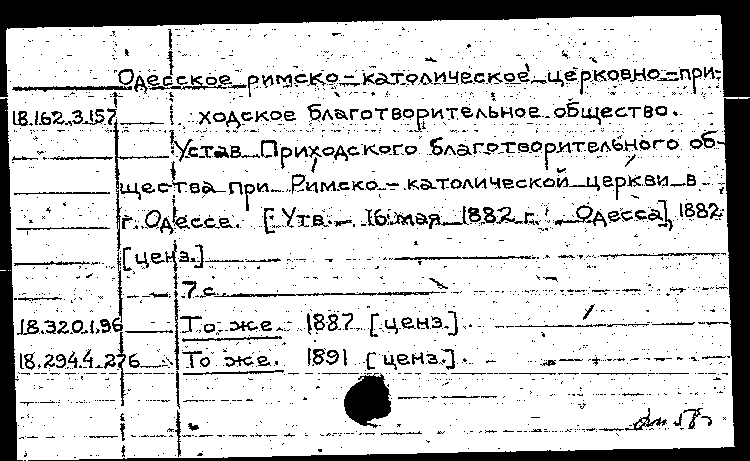 Одесское римско-католическое церковно-при-
18.162.3.157 ходское благотворительное общество.
Устав Приходского благотворительного об-
щества при Римско-католической церкви в
г. Одессе. [Утв. 16 мая 1882 г. Одесса], 1882
[ценз.]
7 с.
18.320.1.96 То же. 1887 [ценз.]
18.294.4.276 То же. 1891 [ценз.].